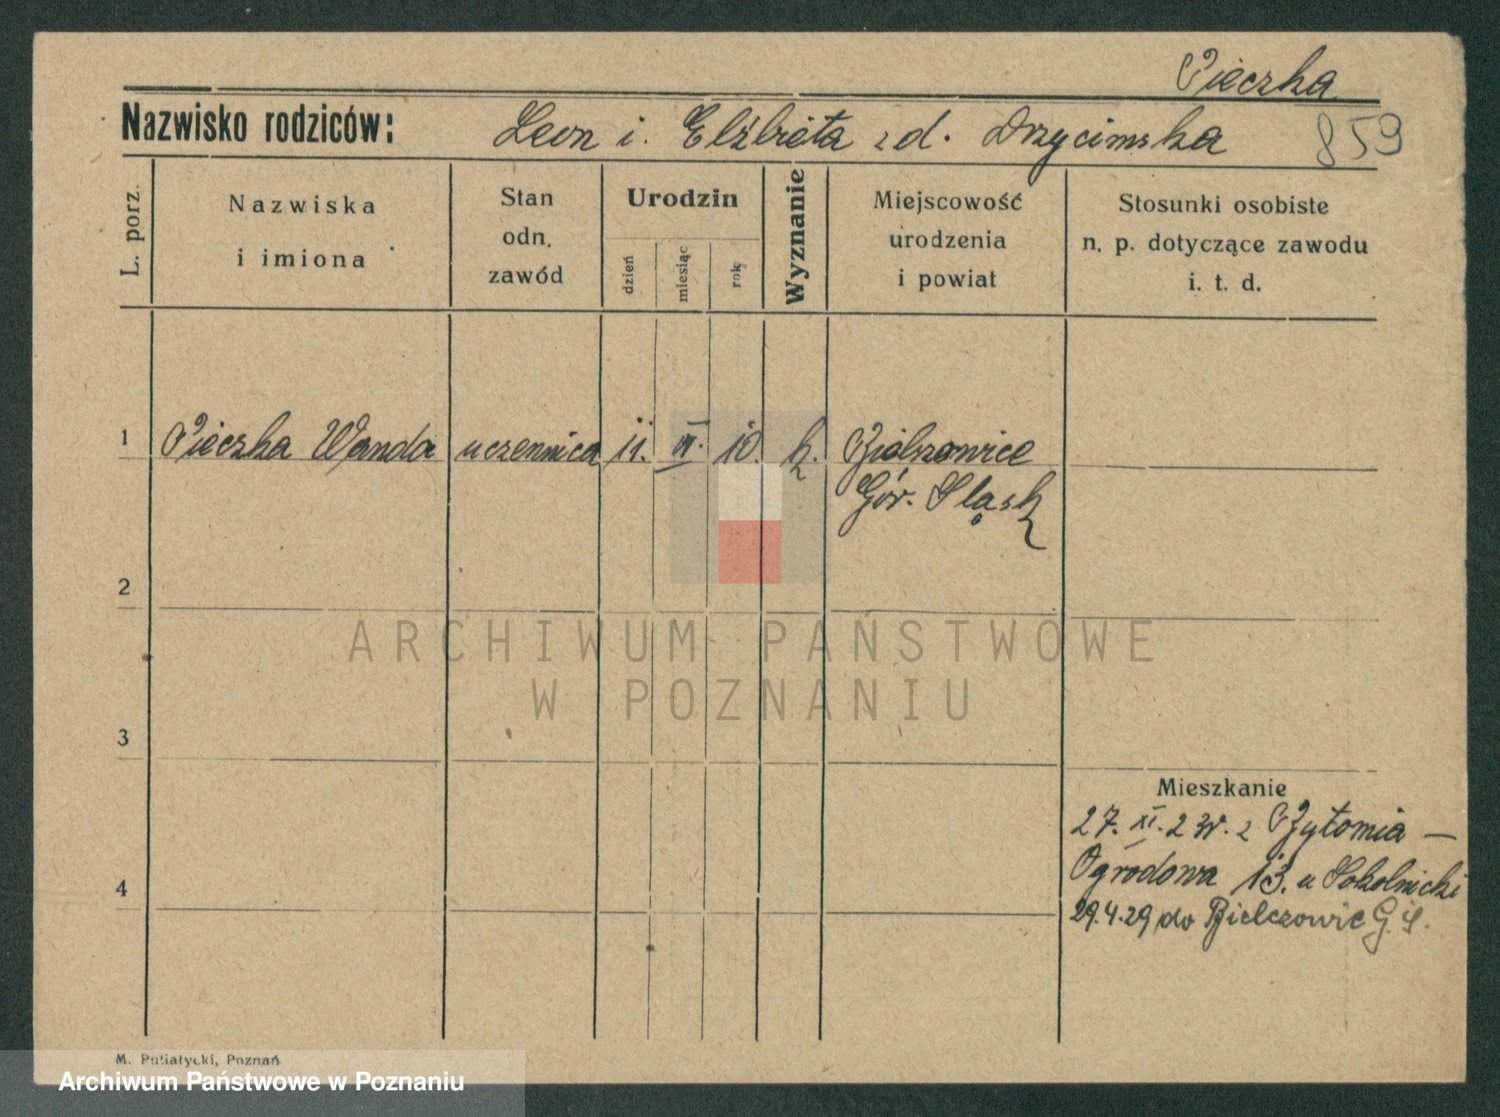 Pieczka
Nazwisko rodziców: Leon i. Elżbieta zd. Drzycimska 859
L. porz.
Nazwiska
i imiona
Stan
odn.
zawód
Urodzin
dzień
miesiąc
rok
Wyznanie
Miejscowość
urodzenia
i powiat
Stosunki osobiste
n. p. dotyczące zawodu
i. t. d.
1 Pieczka Wanda uczennica 11. VI. 10. k. Bielszowice
Gór. Śląsk
2
ARCHIWUM PAŃSTWOWE
W POZNANIU
3
Mieszkanie
27. XI. z
Ogrodowa 13. u Sokolnicki
4
29.4.29 do Bielczowic G.Ś.
M. Putiatycki, Poznań
Archiwum Państwowe w Poznaniu